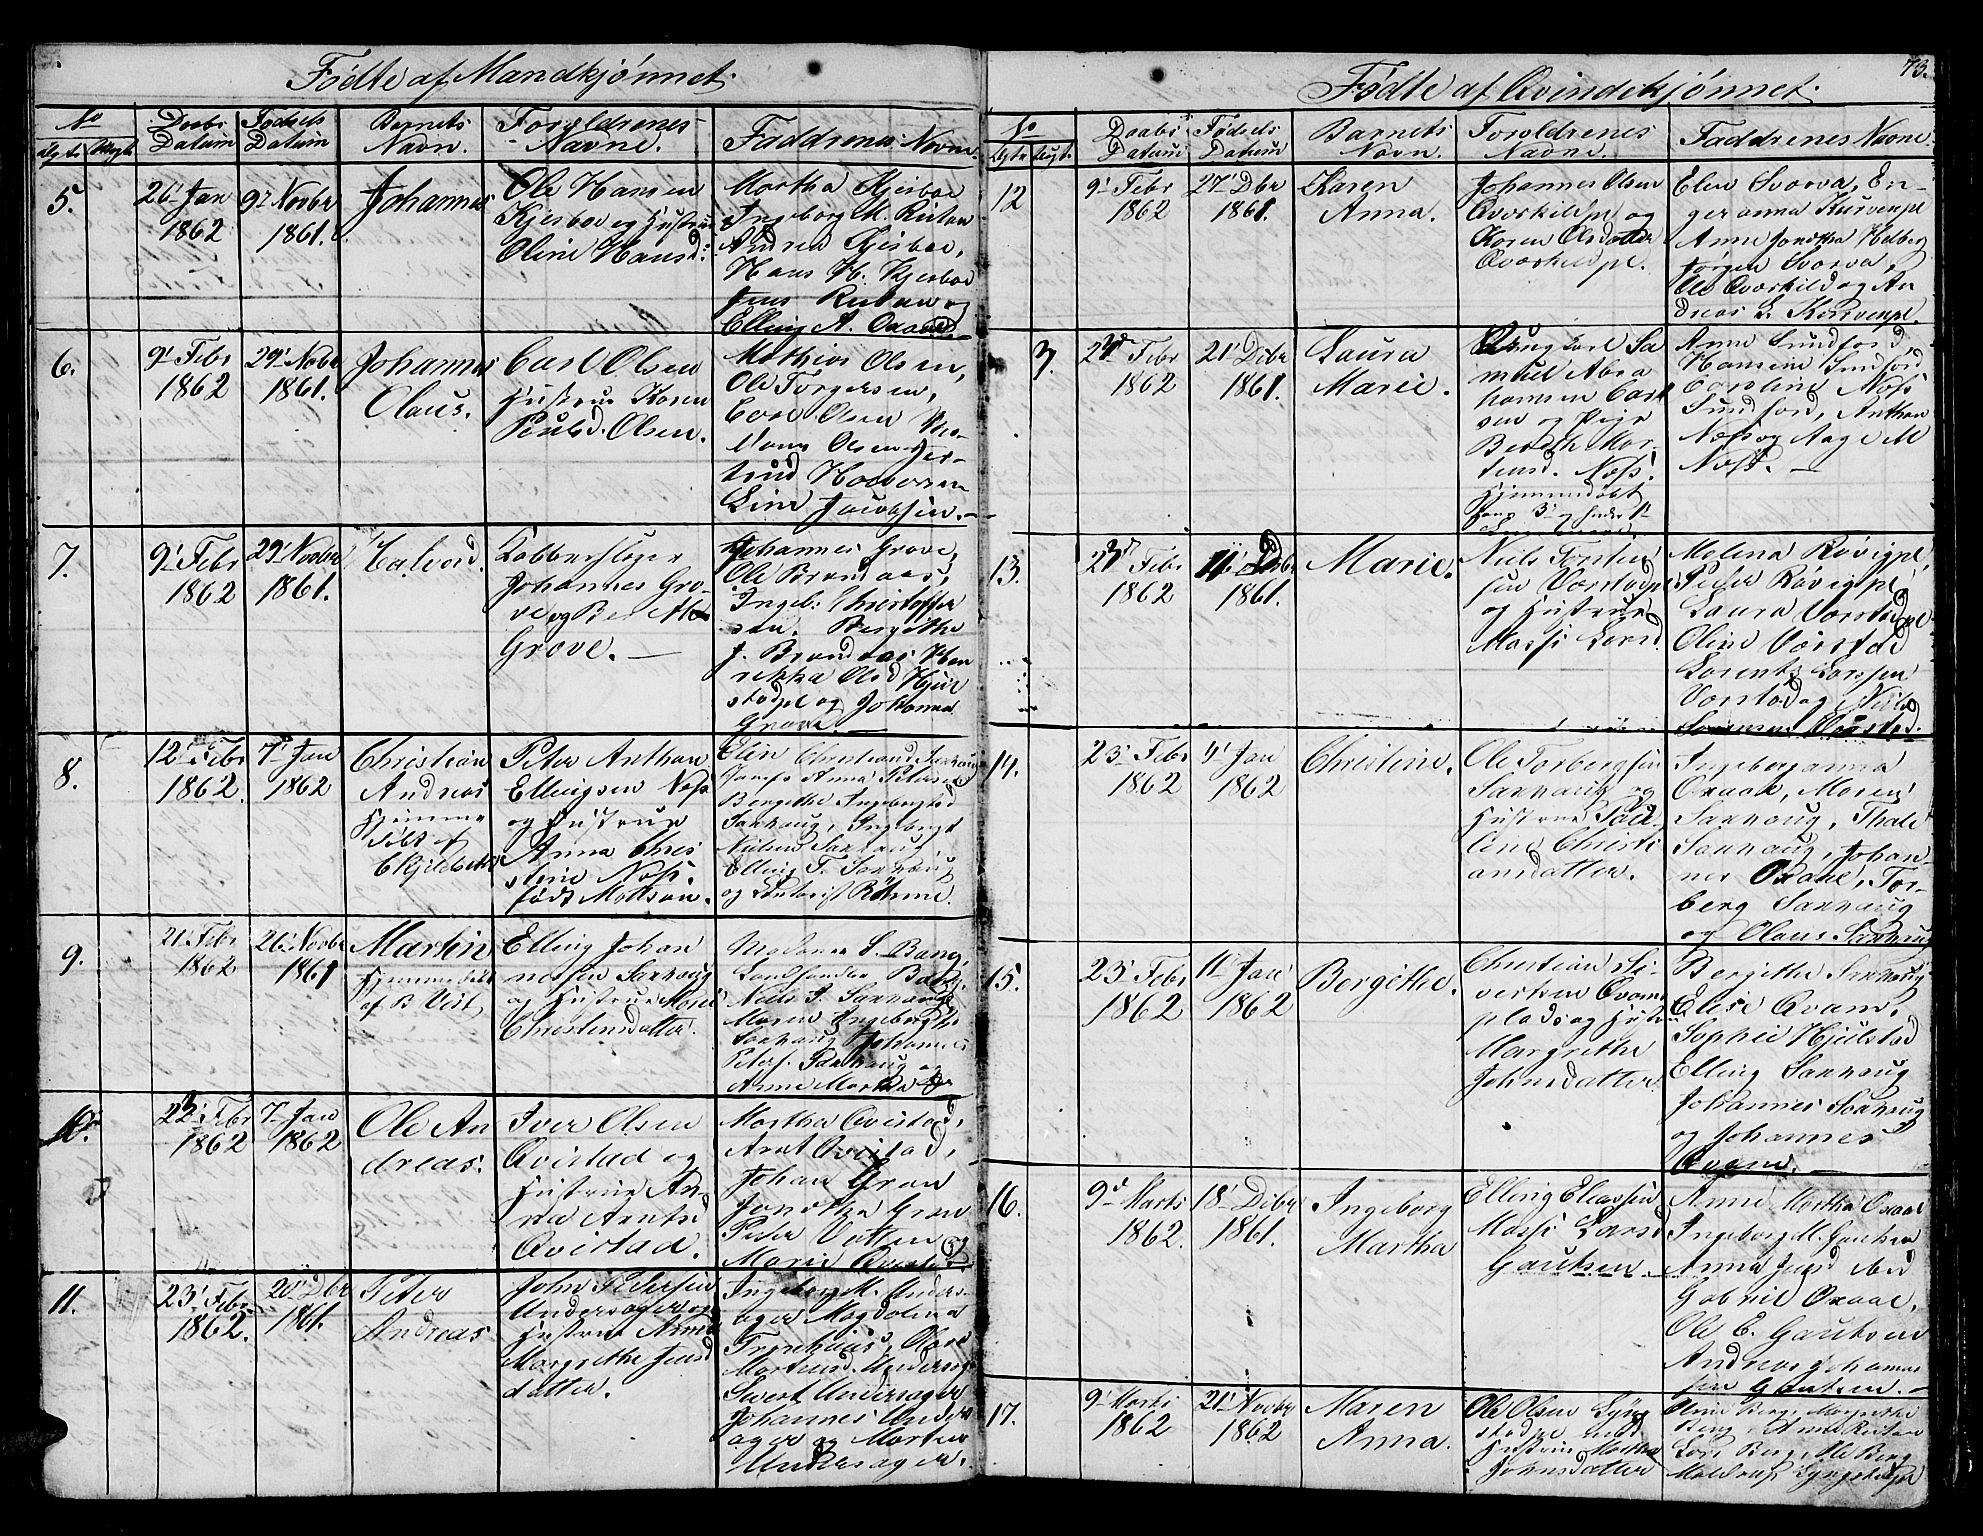 Fødte af Mandkjønnet.
No
Daabs Datum
Fødsels Datum
Barnets Navn.
Forældrenes Navne.
Faddrenes Navne
5.
26 Jan
1862
9 Novbr
1861.
Johannes
Ole Hansen
Kjesboe og Hustrue
Oline Hansd:
Martha Kjesboe
Ingeborg M. Reitan
Andrea Kjesboe,
Hans H. Kjesboe
Jens Reitan og
Elling A. Oxaal.
6.
9 Febr
1862
29 Novbr
1861.
Johannes
Olaus.
Carl Olsen
Hustrue Karen
Paulsd. Olsen.
Mathias Olsen,
Ole Torgersen,
Carl Olsen
Olsen Ger-
trud
Line Jacobsen.
7.
9 Febr
1862
29 Novbr
1861.
Kobbersleger
Johannes Gro-
ve og
Grove. —
Johannes Grove,
Ole Brandaas,
Ingeb: Christoffer
sen. Bergithe
J. Brandaas, Hen
rikka Olsd Hjul
stadpl og Johanna
Grove. —
8.
12 Febr
1862.
7 Jan
1862
Christian
Andreas
Hjemme
døbt af
Peter Anthon
Ellingsen Næss
og Hustrue
Anna Chris
stine Næss.
født Mattson.
Elen Christiansd
Anna Petersen
Bergithe Ingebrigtsd
Saxhaug, Ingebrigt
Nielsen Saxhaug
Elling T. Saxhaug
og
9.
21 Febr
1862
26 Novbr
1861
Martin
Hjemmedøbt
af B Vist
Elling Johan
nessen Saxhaug
og Hustrue Marie
Christensdatter.
Madame S. Bang,
Niels J. Saxhaug
Maren Ingebrigtsd
Saxhaug Johannes
Peters. Saxhaug og
Anne Martha
10.
23 Febr
1862
7 Jan
1862
Ole An
dreas.
Iver Olsen
Qvistad og
Hustrue An-
na Arntsd
Qvistad.
Martha Qvistad,
Arnt Qvistad,
Johan Gran
Jonetha Gran
Peter Vatten og
Marie Qvistad
11.
23 Febr
1862.
20 Dbr
1861.
Peter
Andreas
John Petersen
Undersager og
Hustrue Anne
Margrethe Jensd
datter.
Ingeborg M. Unders-
ager Magdalena
Olava
Martensd. Undersag
Sivert Undersager
Johannes Unders
ager og Morten
Undersager.
73.
Fødte af Qvindekjønnet.
No
Daabs Datum
Fødsels Datum
Barnets Navn.
Forældrenes Navne.
Faddrenes Navne
12
9 Febr
1862
27 Dbr
1861.
Karen
Anna.
Johannes Olsen
Qværkildpl og
Karen Olsdatter
Qværkildpl.
Elen Svarva, En-
geranna Kurvenpl
Anne Jonetha Helberg
Jørgen Svarva,
Ole Qværkild og An
dreas L. Korvenpl.
3.
23 Febr
1862
21 Dcbr
1861.
Laura
Marie.
Ungkarl Sa
muel Abra
hamsen Carl
sen og Pige
Bereth Mar-
tensd. Næss.
Hjemmedøbt
Anne Sundford,
Hansine Sundford
Caroline Næss
Sundford, Anthon
Næss og Aage M
Næss. —
13.
23 Febr
1862
11 Dcbr
1861.
Marie.
Niels
sen Vorstadpl
og Hustrue
Massi Larsd
Malena Røvigpl,
Peder Røvigpl,
Laura Vorstadpl
Oline Vorstad
Lorents Larssen
Vorstad og Niels
Vorstad.
14.
23 Febr
1862
4 Jan
1862
Christine.
Ole Torbergsen
Saxhaug og
Hustrue Pau-
line Christi
ansdatter.
Ingeborganna
Oxaal, Maren
Saxhaug, Thale
Saxhaug, Johan-
nes Oxaal, Tor-
berg Saxhaug
og Olaus Saxhaug
15.
23 Febr
1862
11 Jan
1862
Bergithe.
Christian Si-
vertsen Qvam
plads og Hustrue
Margrethe
Johnsdatter.
Bergithe Saxhaug
Elise Qvam,
Sophie Hjulstad
Elling Saxhaug
Johannes Saxhaug
og Johannes
Qvam. —
16.
9 Marts
1862.
18 Dcbr
1861.
Ingeborg
Martha
Elling Eliassen
Massi Larsd
Gauksen
Anne Martha Oxaal
Ingeborg M.
Anna Jensd
Gabriel Oxaal,
Ole E. Gauksen
Andreas Johannes
sen Gauksen. —
17.
9 Marts
1862
21 Novbr
1862
Maren
Anna.
Ole Olsen Lyng
stadpl med
Hustrue Martha
Johnsdatter
Oline Berg, Margrethe
Berg, Anne Reitan
Lars Berg, Ole Berg